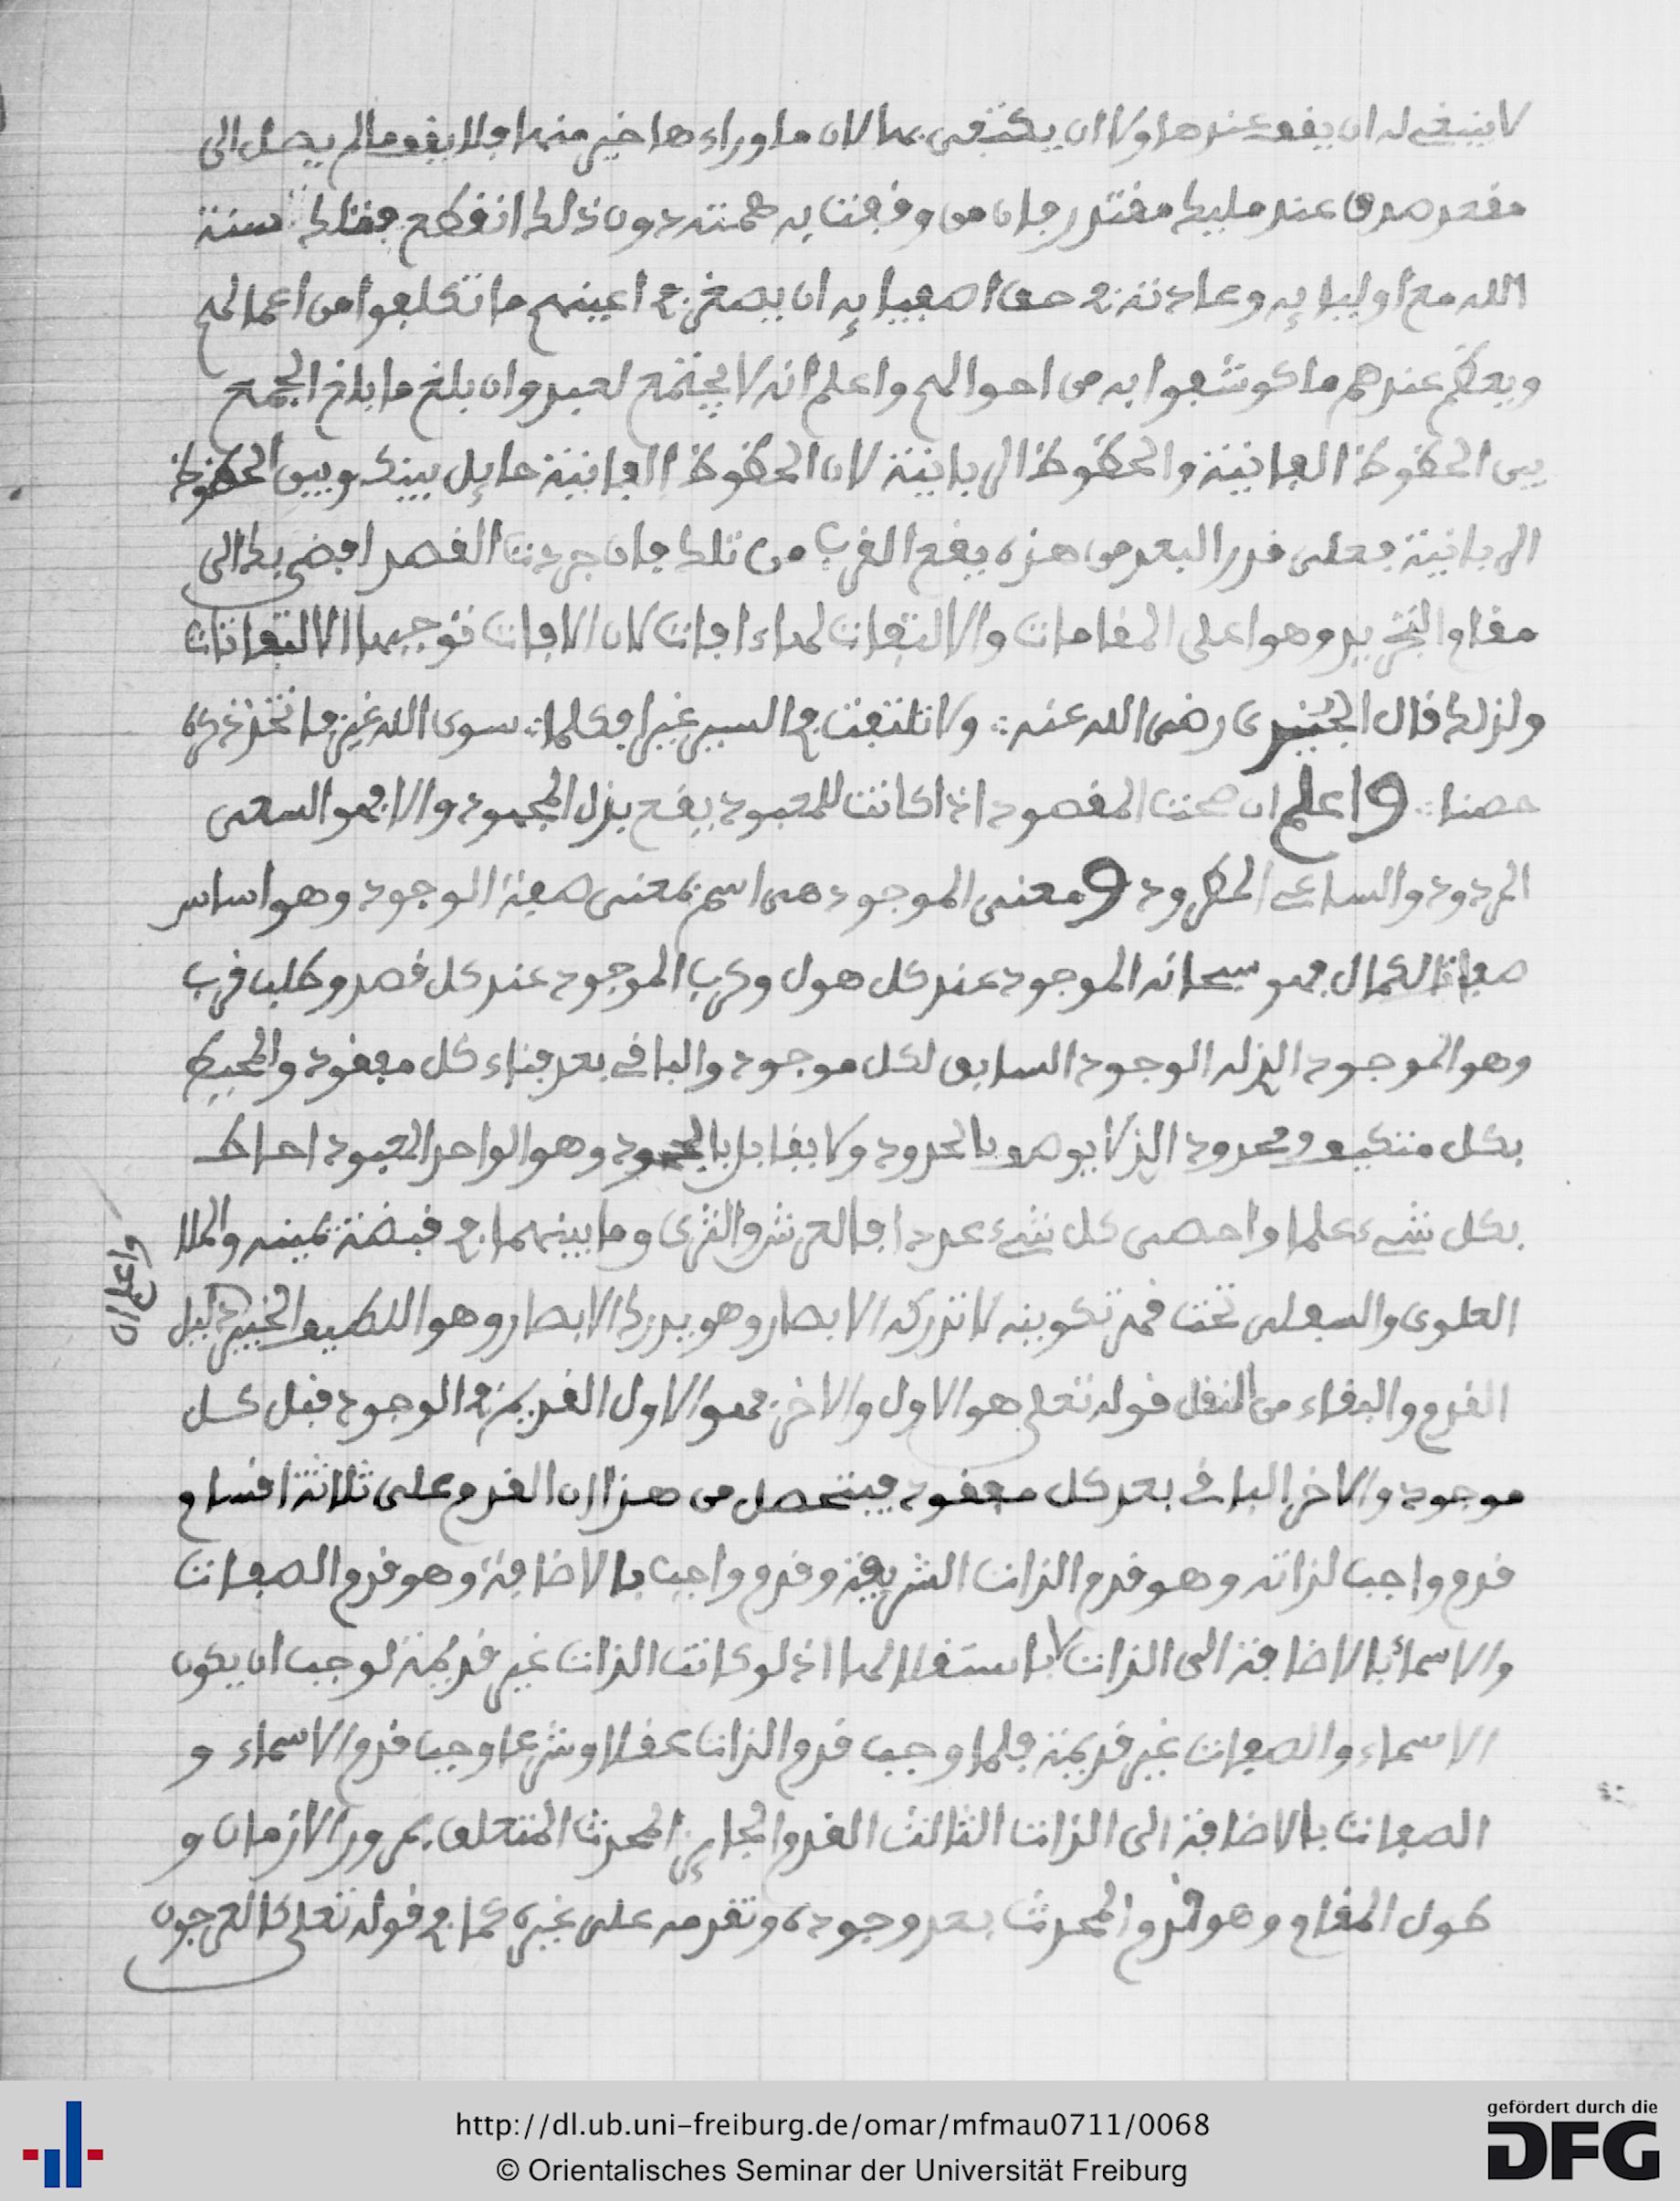 لا ينبغي له ان يقف عندها ولا ان يكتفى بها لان ما وراءها خير منها فلا يقف ما لم يصل الى
مقعد صدق عند مليك مقتدر فان من وقفت به همته دون ذلك انقطع فتلك سنة
الله مع اوليايه وعادته في حق اصفيايه ان يصغر في اعينهم ما تكلفوا من اعمالهم
ويعظم عندهم ما كوشفوا به من احوالهم واعلم انه لا يجتمع لعبد وان بلغ ما بلغ الجمع
بين الحظوظ الفانية والحظوظ الربانية لان الحظوظ الفانية حايل بينك وبين الحظوظ
الربانية فعلى قدر البعد من هذه يقع القرب من تلك فان جردت القصد افضى بك الى
مقام التجريد وهو اعلى المقامات والالتفات لها ءافات لان الافات توجبها الالتفاتات
ولذلك قال رضى الله عنه ولا تلتفت في السير غيرا فكلما سوى الله غير فاتخذ ذكره
حصنا واعلم ان صحت المقصود اذا كانت للمعبود يقع بذل المجهود والا فهو السعى
المردود والساعي المطرود ومعنى الموجود هى اسم بمعنى صفة الوجود وهو اساس
صفات الكمال فهو سبحانه الموجود عند كل هول وكرب الموجود عند كل قصد وطلب قرب
وهو الموجود الذي له الوجود السابق لكل موجود والباقي بعد فناء كل مفقود والمحيط
بكل متكيف ومحدود الذي لا يوصف بالحدود ولا يقابل وهو الواحد المعبود احاط
بكل شيء علما واحصى كل شيء عددا فالعرش والثرى وما بينهما في قبضة يمينه والملا
العلوى والسفلى تحت قهر تكوينه لا تدركه الابصار وهو يدرك الابصار وهو اللطيف الخبير دليل
واعلم ان
القدم والبقاء من النقل قوله تعلى هو الاول والاخر فهو الاول القديم في الوجود قبل كل
موجود والاخر الباقي بعد كل مفقود فيتحصل من هذا ان القدم على ثلاثة اقسام
قدم واجب لذاته وهو قدم الذات الشريفة وقدم واجب بالاضافة وهو قدم الصفات
والاسماء بالاضافة الى الذات لا باستقلالها اذ لو كانت الذات غير قديمة لوجب ان يكون
الاسماء والصفات غير قديمة فلما وجب قدم الذات عقلا وشرعا وجب قدم الاسماء و
الصفات بالاضافة الى الذات الثالث القدم الجايز المحدث المتعلق بمرور الازمان و
طول المقام وهو قدم المحدث بعد وجوده وتقدمه على غيره كما في قوله تعلى كالعرجون
http://dl.ub.uni-freiburg.de/omar/mfmau0711/0068
© Orientalisches Seminar der Universität Freiburg
gefördert durch die
DFG